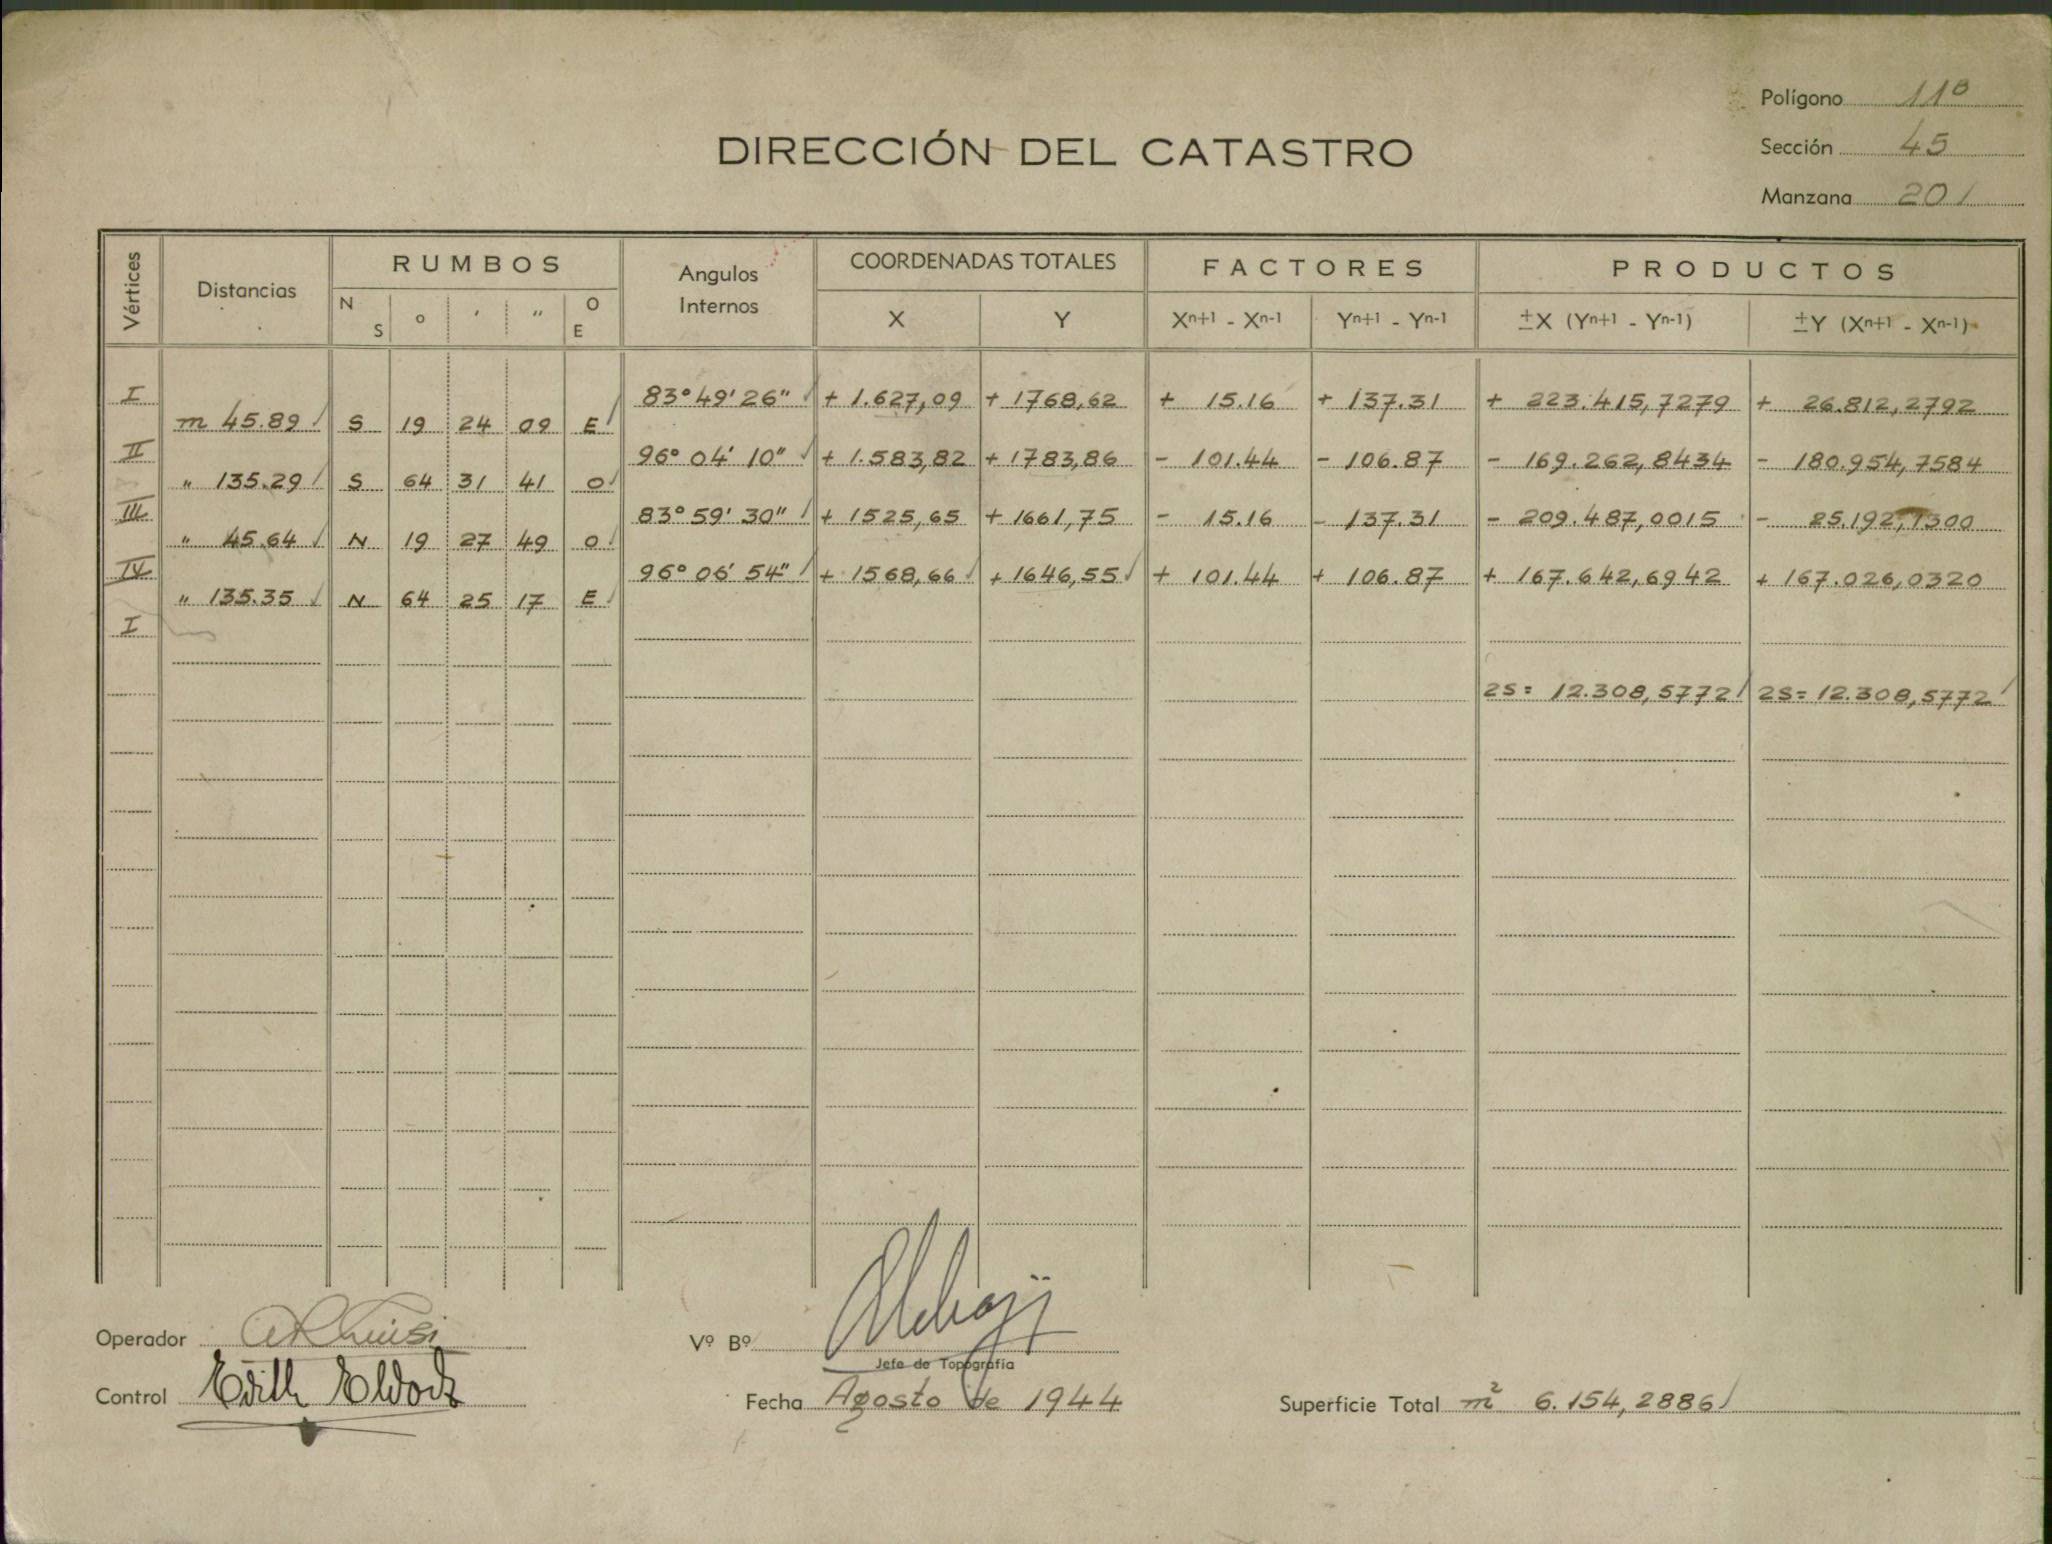 Polígono 11º
Sección 45
Manzana 201
DIRECCIÓN DEL CATASTRO
Vértices Distancias RUMBOS Angulos Internos COORDENADAS TOTALES FACTORES PRODUCTOS
N S ° ' " O E X Y Xn+1 - Xn-1 Yn+1 - Yn-1 ±X (Yn+1 - Yn-1) ±Y (Xn+1 - Xn-1)
I 83°49'26" + 1.627,09 + 1768,62 + 15.16 + 137.31 + 223.415,7279 + 26.812,2792
m 45.89 S 19 24 09 E
II 96° 04' 10" + 1.583,82 + 1783,86 - 101.44 - 106.87 - 169.262,8434 - 180.954,7584
" 135.29 S 64 31 41 O
III 83° 59' 30" + 1525,65 + 1661,75 - 15.16 - 137.31 - 209.487,0015 - 25.192,1300
" 45.64 N 19 27 49 O
IV 96° 06' 54" + 1568,66 + 1646,55 + 101.44 + 106.87 + 167.642,6942 + 167.026,0320
" 135.35 N 64 25 17 E
I
2S = 12.308,5772 2S = 12.308,5772
Operador
Vº Bº
Jefe de Topografía
Control Edith
Fecha Agosto de 1944
Superficie Total m² 6.154,2886